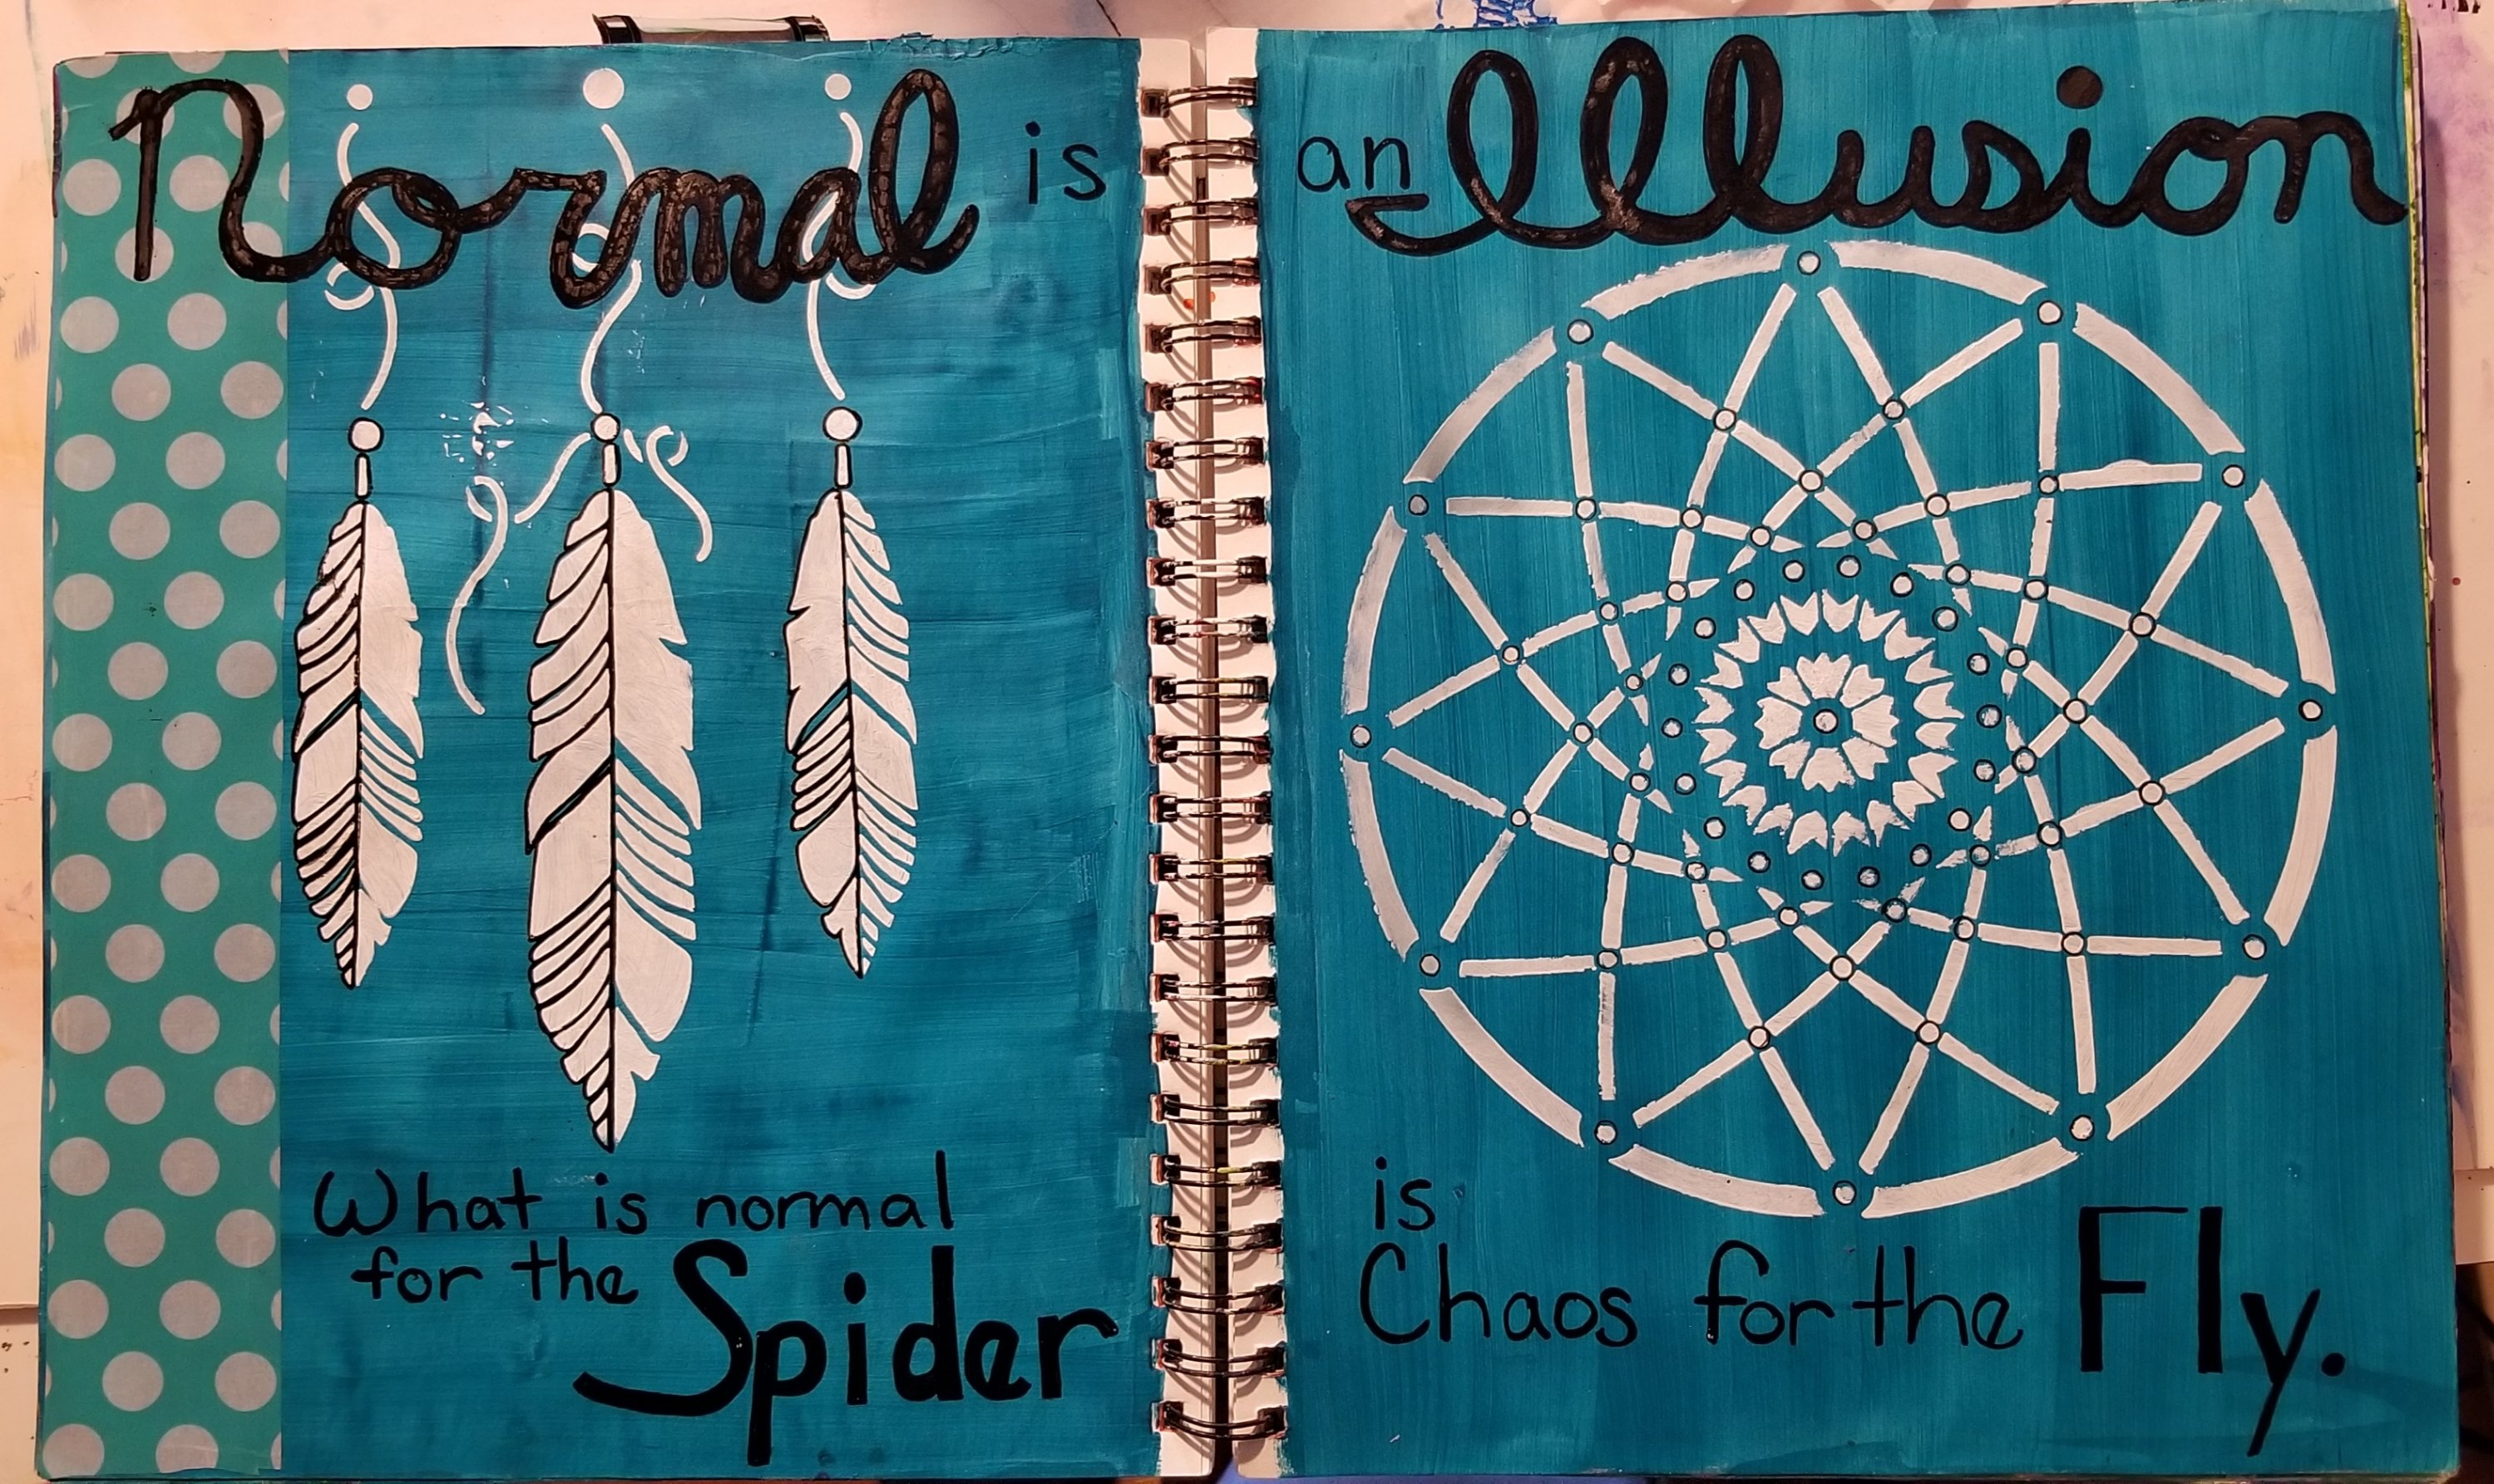 Normal is an Illusion
What is normal
for the Spider
is
Chaos for the Fly.